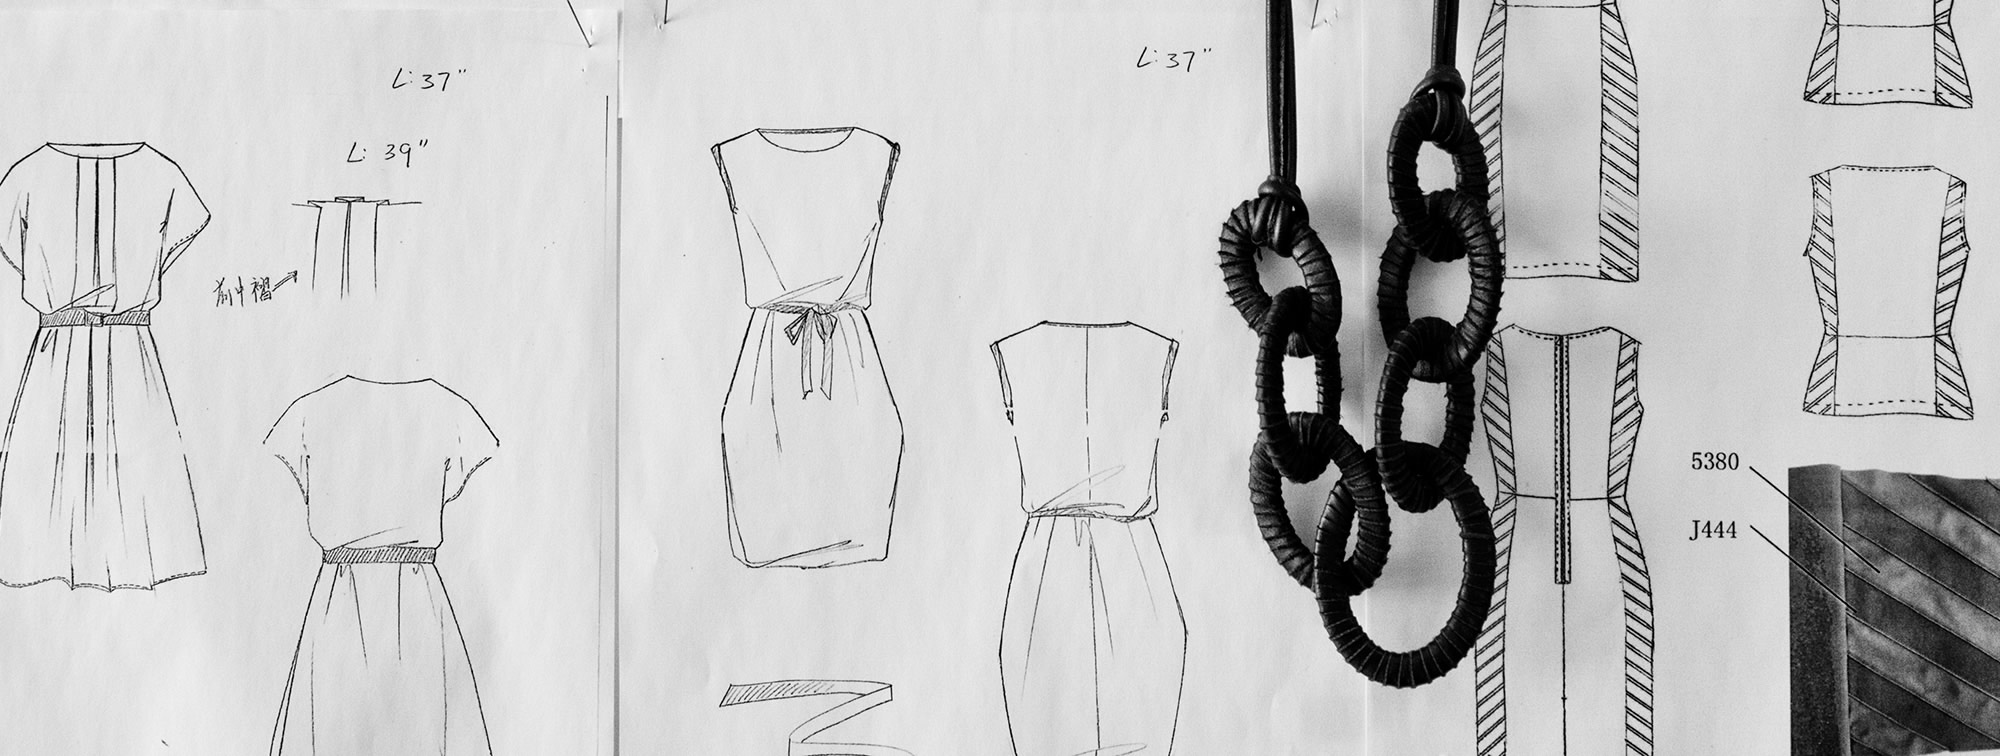 L: 37"
L: 39"
前中褶
L: 37"
5380
J444